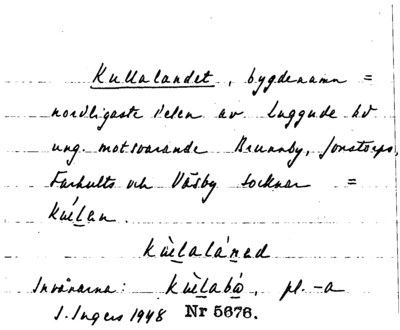 Kullalandet, bygdenamn =
nordligaste delen av Luggude hd
ung. motsvarande Brunnby, Jonstorps,
Farhults och Väsby socknar =
Kùllan.
kùllaláned
Invånarna: kùllabo, pl. -a
I. Ingers 1948 Nr 5676.